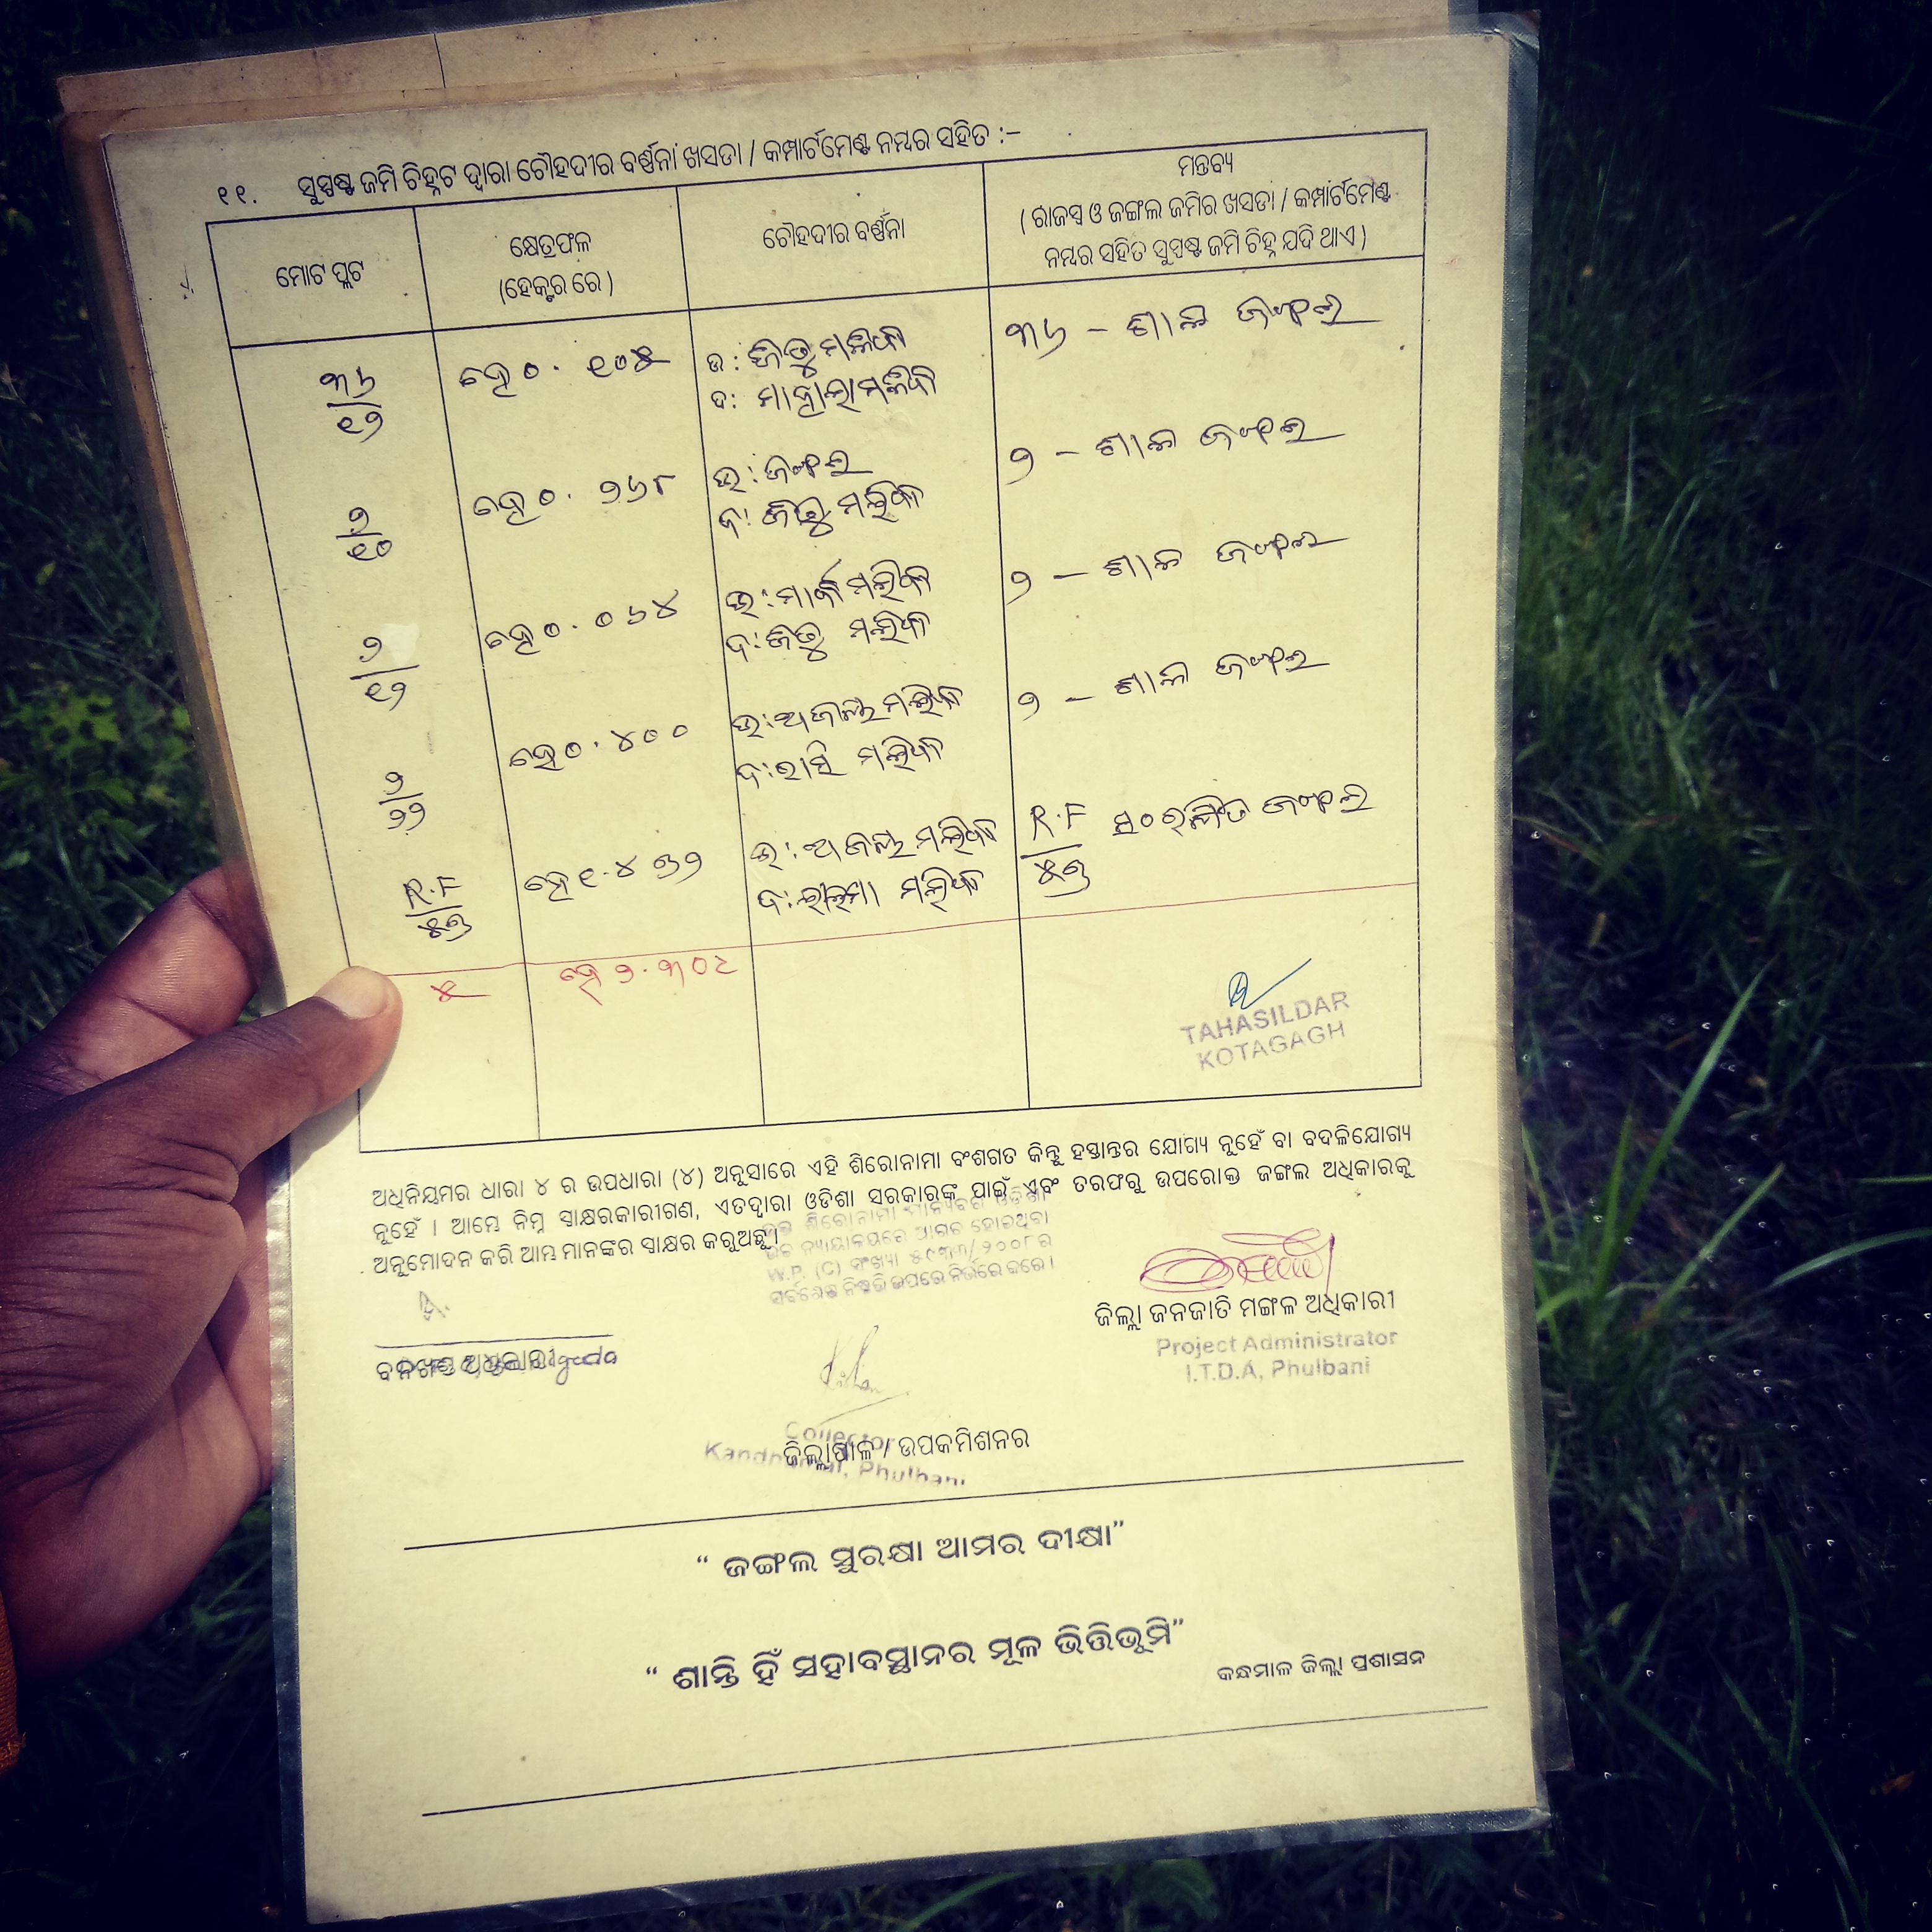 ୧୧. ସୁସ୍ପଷ୍ଟ ଜମି ଚିହ୍ନଟ ଦ୍ୱାରା ଚୌହଦୀର ବର୍ଣ୍ଣନା ଖସଡା / କମ୍ପାର୍ଟମେଣ୍ଟ ନମ୍ଵର ସହିତ :-
ମୋଟ ପ୍ଲଟ
କ୍ଷେତ୍ରଫଳ
(ହେକ୍ଟର ରେ)
ଚୌହଦୀର ବର୍ଣ୍ଣନା
ମନ୍ତବ୍ୟ
( ରାଜସ୍ୱ ଓ ଜଙ୍ଗଲ ଜମିର ଖସଡା / କମ୍ପାର୍ଟମେଣ୍ଟ
ନମ୍ଵର ସହିତ ସୁସ୍ପଷ୍ଟ ଜମି ଚିହ୍ନ ଯଦି ଥାଏ )
୩୬
୧୨
ହେ ୦.୧୦୫
ଉ: ଜିତୁ ମଲିକ
ଦ: ମଲିକ
୩୬ - ଶାଳ ଜଙ୍ଗଲ
୨
୧୦
ହେ ୦.୨୬୮
ଉ: ଜଙ୍ଗଲ
ଦ: ଜିତୁ ମଲିକ
୨ - ଶାଳ ଜଙ୍ଗଲ
୨
୧୨
ହେ ୦.୦୬୪
ଉ: ମାର୍କ ମଲିକ
ଦ: ଜିତୁ ମଲିକ
୨ - ଶାଳ ଜଙ୍ଗଲ
୨
୨୨
ହେ ୦.୪୦୦
ଉ: ଅଜନ୍ତ ମଲିକ
ଦ: ରାସି ମଲିକ
୨ - ଶାଳ ଜଙ୍ଗଲ
R.F
ହେ ୧.୪୭୨
ଉ: ଅଜନ୍ତ ମଲିକ
ଦ: ମଲିକ
R.F ସଂରକ୍ଷିତ ଜଙ୍ଗଲ
୫ ହେ ୨.୩୦୯
TAHASILDAR
KOTAGAGH
ଅଧିନିୟମର ଧାରା ୪ ର ଉପଧାରା (୪) ଅନୁସାରେ ଏହି ଶିରୋନାମା ବଂଶଗତ କିନ୍ତୁ ହସ୍ତାନ୍ତର ଯୋଗ୍ୟ ନୁହେଁ ବା ବଦଳିଯୋଗ୍ୟ
ନୁହେଁ । ଆମ୍ଭେ ନିମ୍ନ ସ୍ୱାକ୍ଷରକାରୀଗଣ, ଏତଦ୍ୱାରା ଓଡିଶା ସରକାରଙ୍କ ପାଇଁ ଏବଂ ତରଫରୁ ଉପରୋକ୍ତ ଜଙ୍ଗଲ ଅଧିକାରକୁ
ଅନୁମୋଦନ କରି ଆମ୍ଭ ମାନଙ୍କର ସ୍ୱାକ୍ଷର କରୁଅଛୁ ।
ଶିରୋନାମା ମାନ୍ୟବର ଓଡ଼ିଶା
ନ୍ୟାୟାଳୟରେ ଆଗତ ହୋଇଥିବା
W.P. (C) ସଂଖ୍ୟା /୨୦୦୮ର
ସର୍ବଶେଷ ନିଷ୍ପତ୍ତି ଉପରେ ନିର୍ଭରେ କରେ।
ବନଖଣ୍ଡ ଅଧିକାରୀ
ଜିଲ୍ଲା ଜନଜାତି ମଙ୍ଗଳ ଅଧିକାରୀ
Project Administrator
I.T.D.A, Phulbani
Collector
ଜିଲ୍ଲାପାଳ / ଉପକମିଶନର
Kandhamal, Phulbani
“ ଜଙ୍ଗଲ ସୁରକ୍ଷା ଆମର ଦୀକ୍ଷା”
“ ଶାନ୍ତି ହିଁ ସହାବସ୍ଥାନର ମୂଳ ଭିତ୍ତିଭୂମି”
କନ୍ଧମାଳ ଜିଲ୍ଲା ପ୍ରଶାସନ